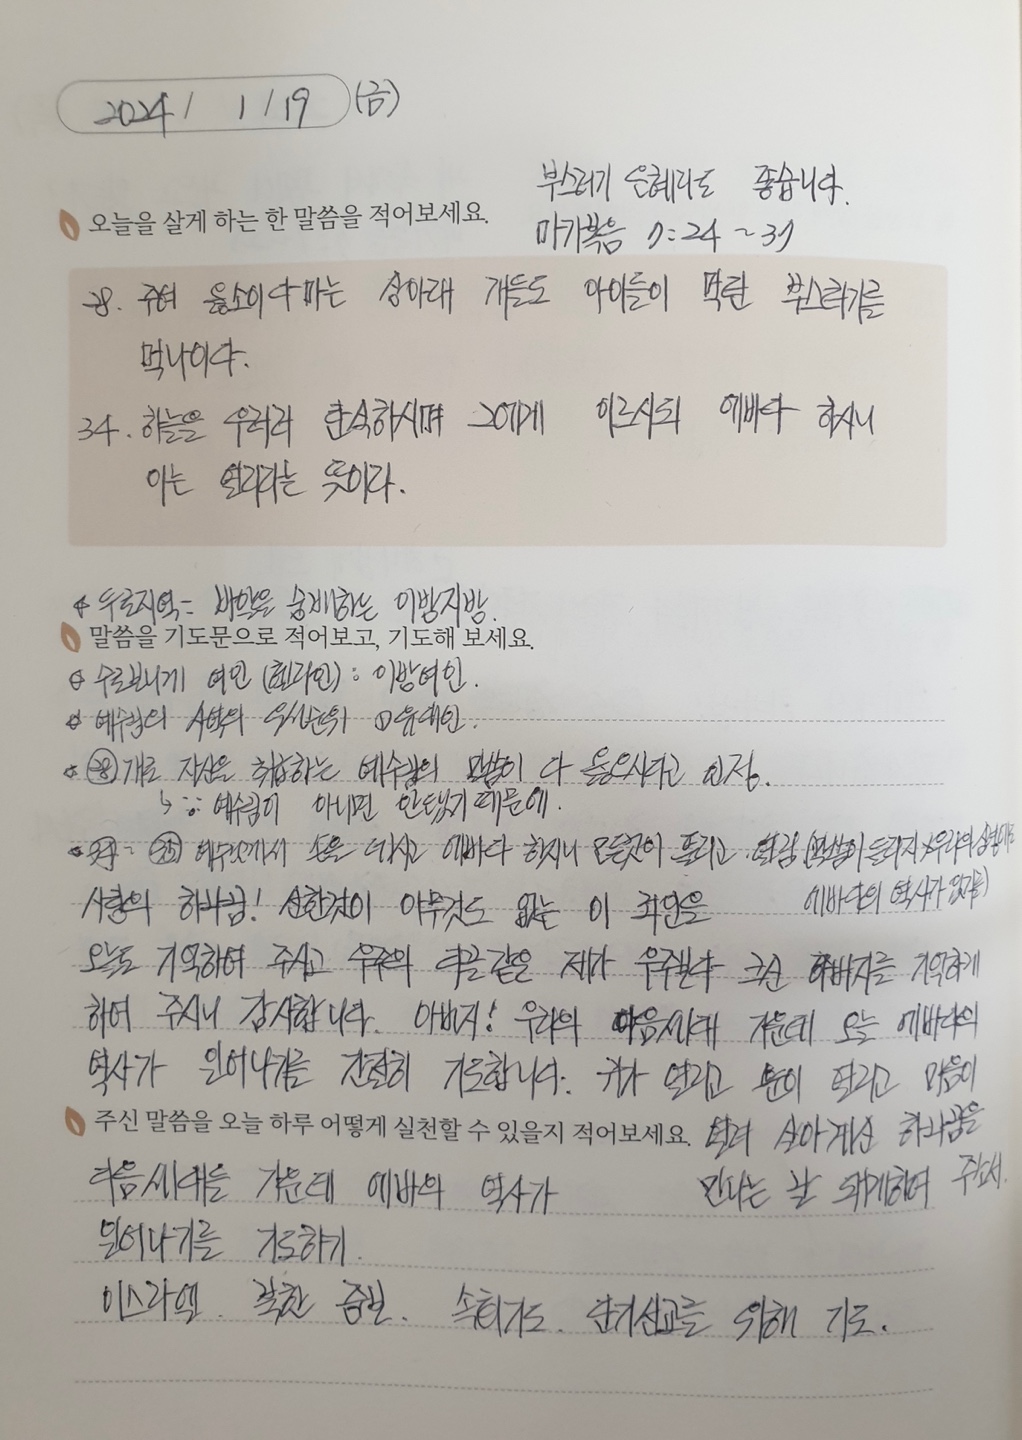 2024 / 1 / 19 (금)
부스러기 은혜라도 좋습니다.
오늘을 살게 하는 한 말씀을 적어보세요.
마가복음 7:24 ~ 37
28. 주여 옳소이다마는 상아래 개들도 아이들이 먹란 부스러기를
먹나이다.
34. 하늘을 우러러 탄식하시며 그에게 이르시되 에바다 하시니
이는 열리라는 뜻이다.
두로지역= 바알을 숭배하는 이방지방.
말씀을 기도문으로 적어보고, 기도해 보세요.
수로보니게 여인 (헬라인) : 이방여인.
예수님의 사역의 우선순위 유대인.
28 개로 자신을 취급하는 예수님의 말씀이 다 옳으시다고 인정.
↳ ∵ 예수님이 아니면 안됐기 때문에.
34 - 35 예수님께서 손을 대시고 에바다 하시니 모든것이 들리고 열림 (말씀이 들리지 우리의 심령에도
에바다의 역사가 있기를)
사랑의 하나님! 선한것이 아무것도 없는 이 죄인을
오늘도 기억하여 주시고 우주의 티끌같은 제가 우주보다 크신 아버지를 기억하게
하여 주시니 감사합니다. 아버지! 우리의 다음세대 가운데 오늘 에바다의
역사가 일어나기를 간절히 기도합니다. 귀가 열리고 눈이 열리고 마음이
주신 말씀을 오늘 하루 어떻게 실천할 수 있을지 적어보세요.
열려 살아계신 하나님을
만나는 날 되게하여 주소서.
다음세대들 가운데 에바다의 역사가
일어나기를 기도하기.
이스라엘. 중보. 속회기도. 단기선교를 위해 기도.